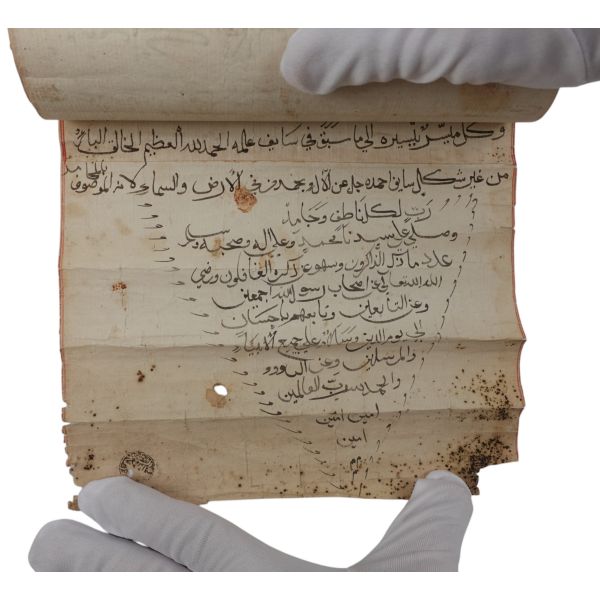 وكل ميسر بتيسيره الى ما سبق في سابق علمه الحمد لله العظيم الخالق البارئ
من غير شكل سابق احمده جل عن في الارض والسماء لانه الموصوف بالمحامد
رب لكل ناطق وجامد
وصلى على سيدنا محمد وعلى اله وصحبه وسلم
عدد ما ذكره الذاكرون وسهو عن ذكره الغافلون ورضي
الله تعالى عن اصحاب رسول الله اجمعين
وعن التابعين وتابعهم باحسان
الى يوم الدين وسلام على جميع الانبياء
والمرسلين وعن
والحمد لله رب العالمين
امين امين
امين